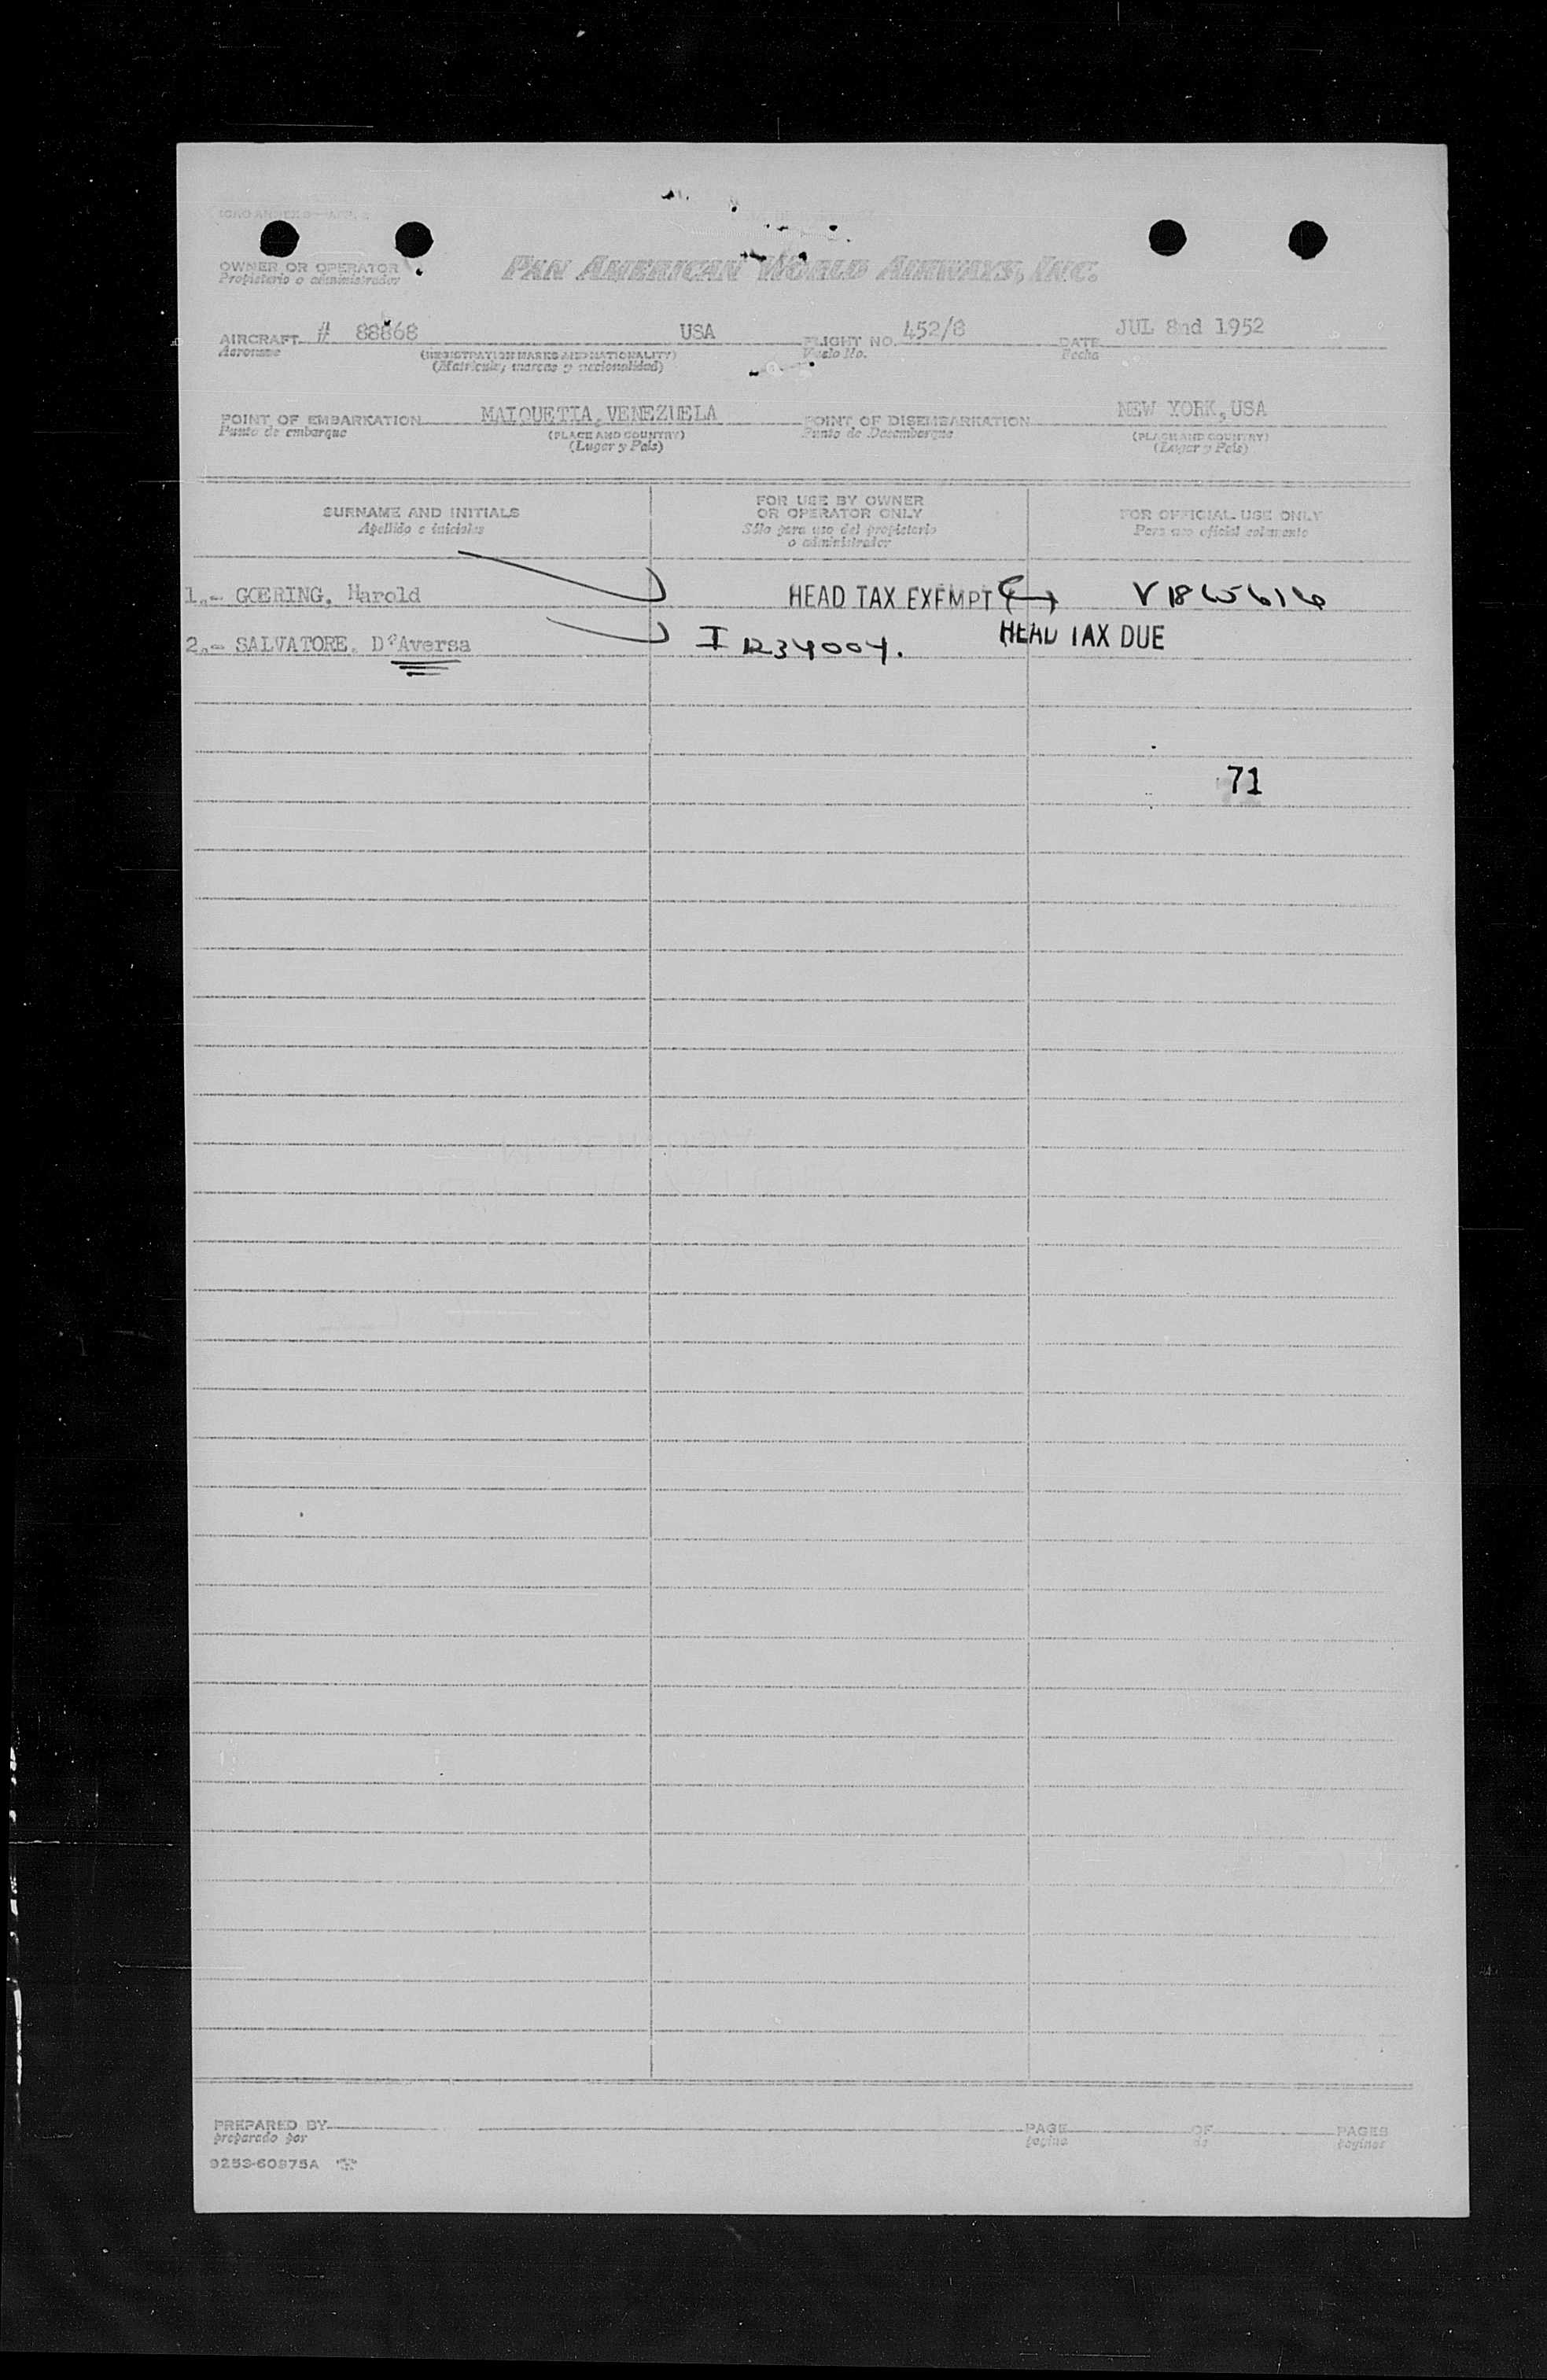 ICAO ANNEX 9—APP. 2
OWNER OR OPERATOR PAN AMERICAN WORLD AIRWAYS, INC.
Propietario o administrador
AIRCRAFT # 88868 USA FLIGHT NO. 452/8 DATE JUL 8nd 1952
Aeronave (REGISTRATION MARKS AND NATIONALITY) Vuelo No. Fecha
(Matricula, marcas y nacionalidad)
POINT OF EMBARKATION MAIQUETIA, VENEZUELA POINT OF DISEMBARKATION NEW YORK, USA
Punto de embarque (PLACE AND COUNTRY) Punto de Desembarque (PLACE AND COUNTRY)
(Lugar y Pais) (Lugar y Pais)
SURNAME AND INITIALS FOR USE BY OWNER OR OPERATOR ONLY FOR OFFICIAL USE ONLY
Apellido e iniciales Sólo para uso del propietario o administrador Para uso oficial solamente
1.- GOERING, Harold HEAD TAX EXEMPT V1865616
2.- SALVATORE, D'Aversa I 1234004. HEAD TAX DUE
71
PREPARED BY PAGE OF PAGES
preparado por pagina de paginas
9253-60975A